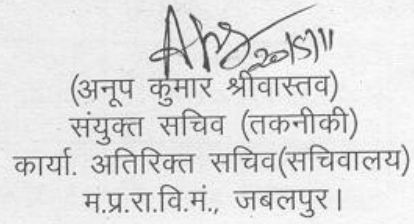 20/5/11
(अनूप कुमार श्रीवास्तव)
संयुक्त सचिव (तकनीकी)
कार्या. अतिरिक्त सचिव(सचिवालय)
म.प्र.रा.वि.मं., जबलपुर।